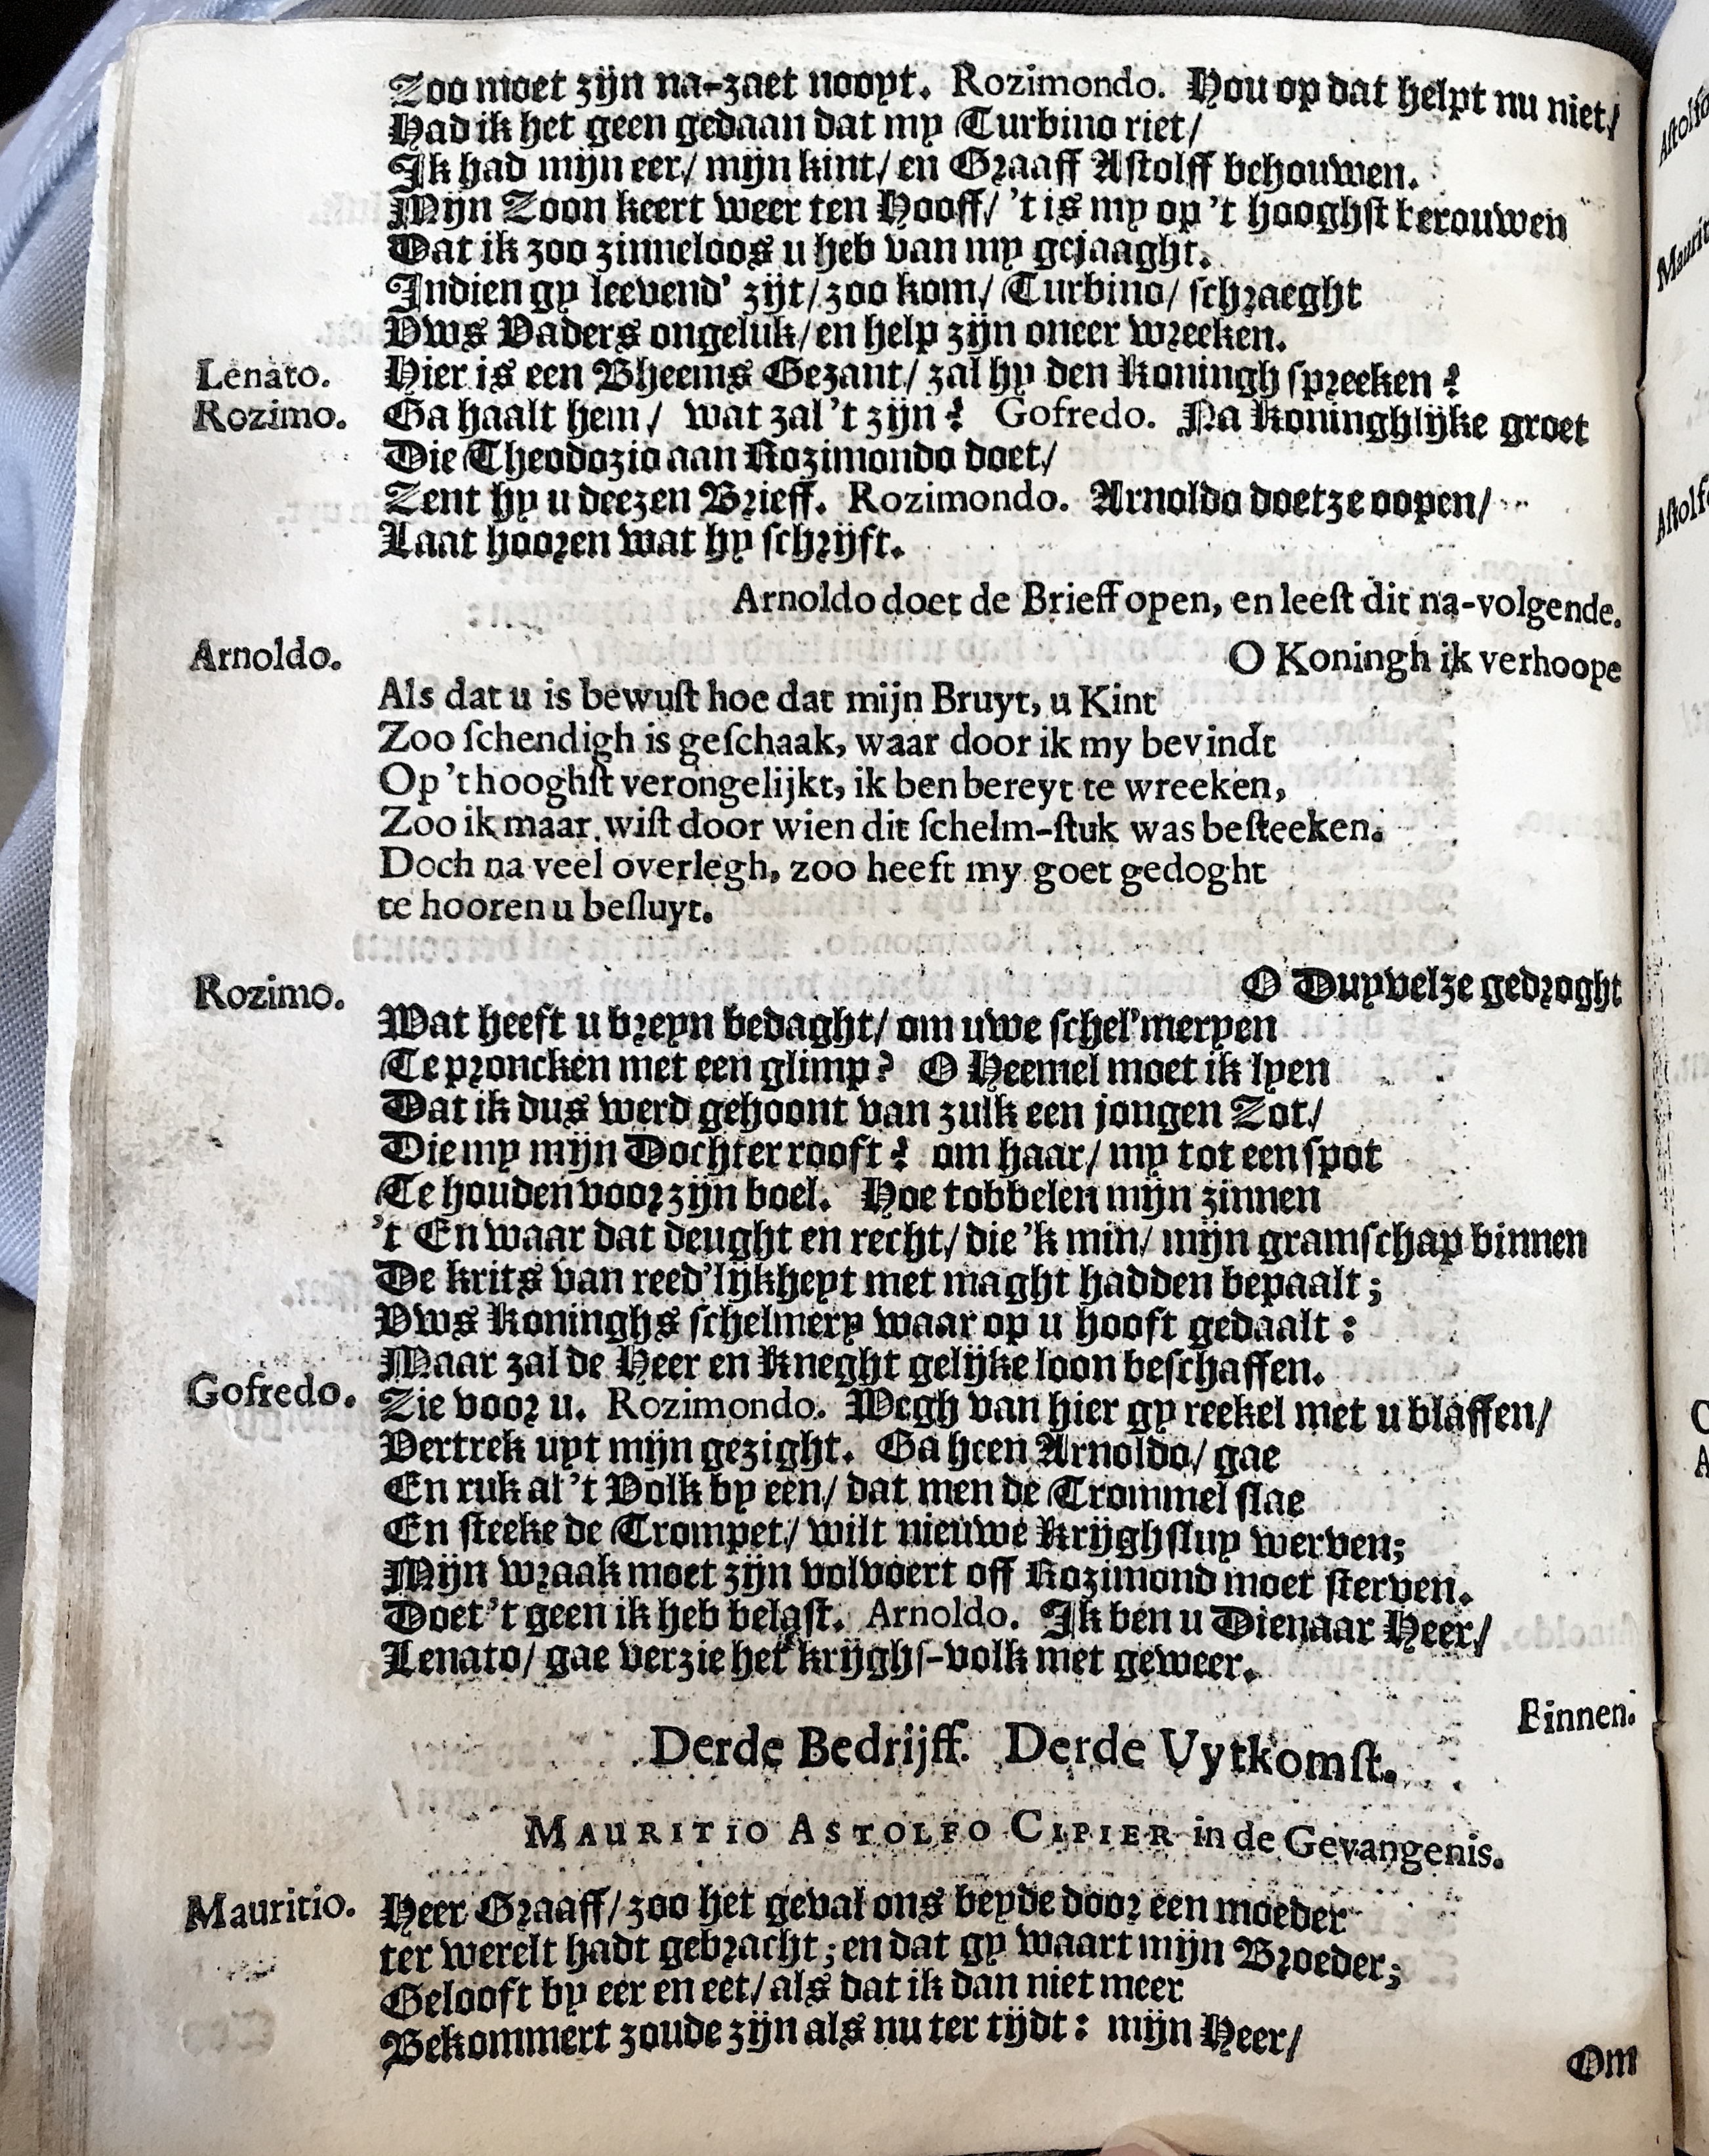 Zoo moet zijn na-zaet noopt. Rozimondo. Hou op dat helpt nu niet/
Had ik het geen gedaan dat my Turbino riet/
Ik had mijn eer/ mijn kint/ en Graaff Astolff behouwen.
Mijn Zoon keert weer ten Hooff/ 't is my op 't hooghst berouwen
Dat ik zoo zinneloos u heb van my gejaaght.
Indien gy leevend' zijt/ zoo kom/ Turbino/ schraeght
Vws Vaders ongeluk/ en help zijn oneer wreeken.
Lenato. Hier is een Bheems Gezant/ zal hy den Koningh spreeken?
Rozimo. Ga haalt hem/ wat zal 't zijn? Gofredo. Na Koninghlijke groet
Die Theodozio aan Rozimondo doet/
Zent hy u deezen Brieff. Rozimondo. Arnoldo doetze oopen/
Laat hooren wat hy schrijft.
Arnoldo doet de Brieff open, en leest dit na-volgende.
Arnoldo. O Koningh ik verhoope
Als dat u is bewust hoe dat mijn Bruyt, u Kint
Zoo schendigh is geschaak, waar door ik my bevindt
Op 't hooghst verongelijkt, ik ben bereyt te wreeken,
Zoo ik maar wist door wien dit schelm-stuk was besteeken.
Doch na veel overlegh, zoo heeft my goet gedoght
te hooren u besluyt.
Rozimo. O Duyvelze gedroght
Wat heeft u breyn bedaght/ om uwe schel'meryen
Te proncken met een glimp? O Heemel moet ik lyen
Dat ik dus werd gehoont van zulk een jongen Zot/
Die my mijn Dochter rooft? om haar/ my tot een spot
Te houden voor zijn boel. Hoe tobbelen mijn zinnen
't En waar dat deught en recht/ die 'k min/ mijn gramschap binnen
De krits van reed'lijkheyt met maght hadden bepaalt;
Vws Koninghs schelmery waar op u hooft gedaalt:
Maar zal de Heer en Kneght gelijke loon beschaffen.
Gofredo. Zie voor u. Rozimondo. Wegh van hier gy reekel met u blaffen/
Vertrek uyt mijn gezight. Ga heen Arnoldo/ gae
En ruk al 't Volk by een/ dat men de Trommel slae
En steeke de Trompet/ wilt nieuwe Krijghsluy werven;
Mijn wraak moet zijn volvoert off Rozimond moet sterven.
Doet 't geen ik heb belast. Arnoldo. Ik ben u Dienaar Heer/
Lenato/ gae verzie het krijghs-volk met geweer.
Binnen.
Derde Bedrijff. Derde Uytkomst.
MAURITIO ASTOLFO CIPIER in de Gevangenis.
Mauritio. Heer Graaff/ zoo het geval ons beyde door een moeder
ter werelt hadt gebracht; en dat gy waart mijn Broeder;
Gelooft by eer en eet/ als dat ik dan niet meer
Bekommert zoude zijn als nu ter tijdt: mijn Heer/
Om